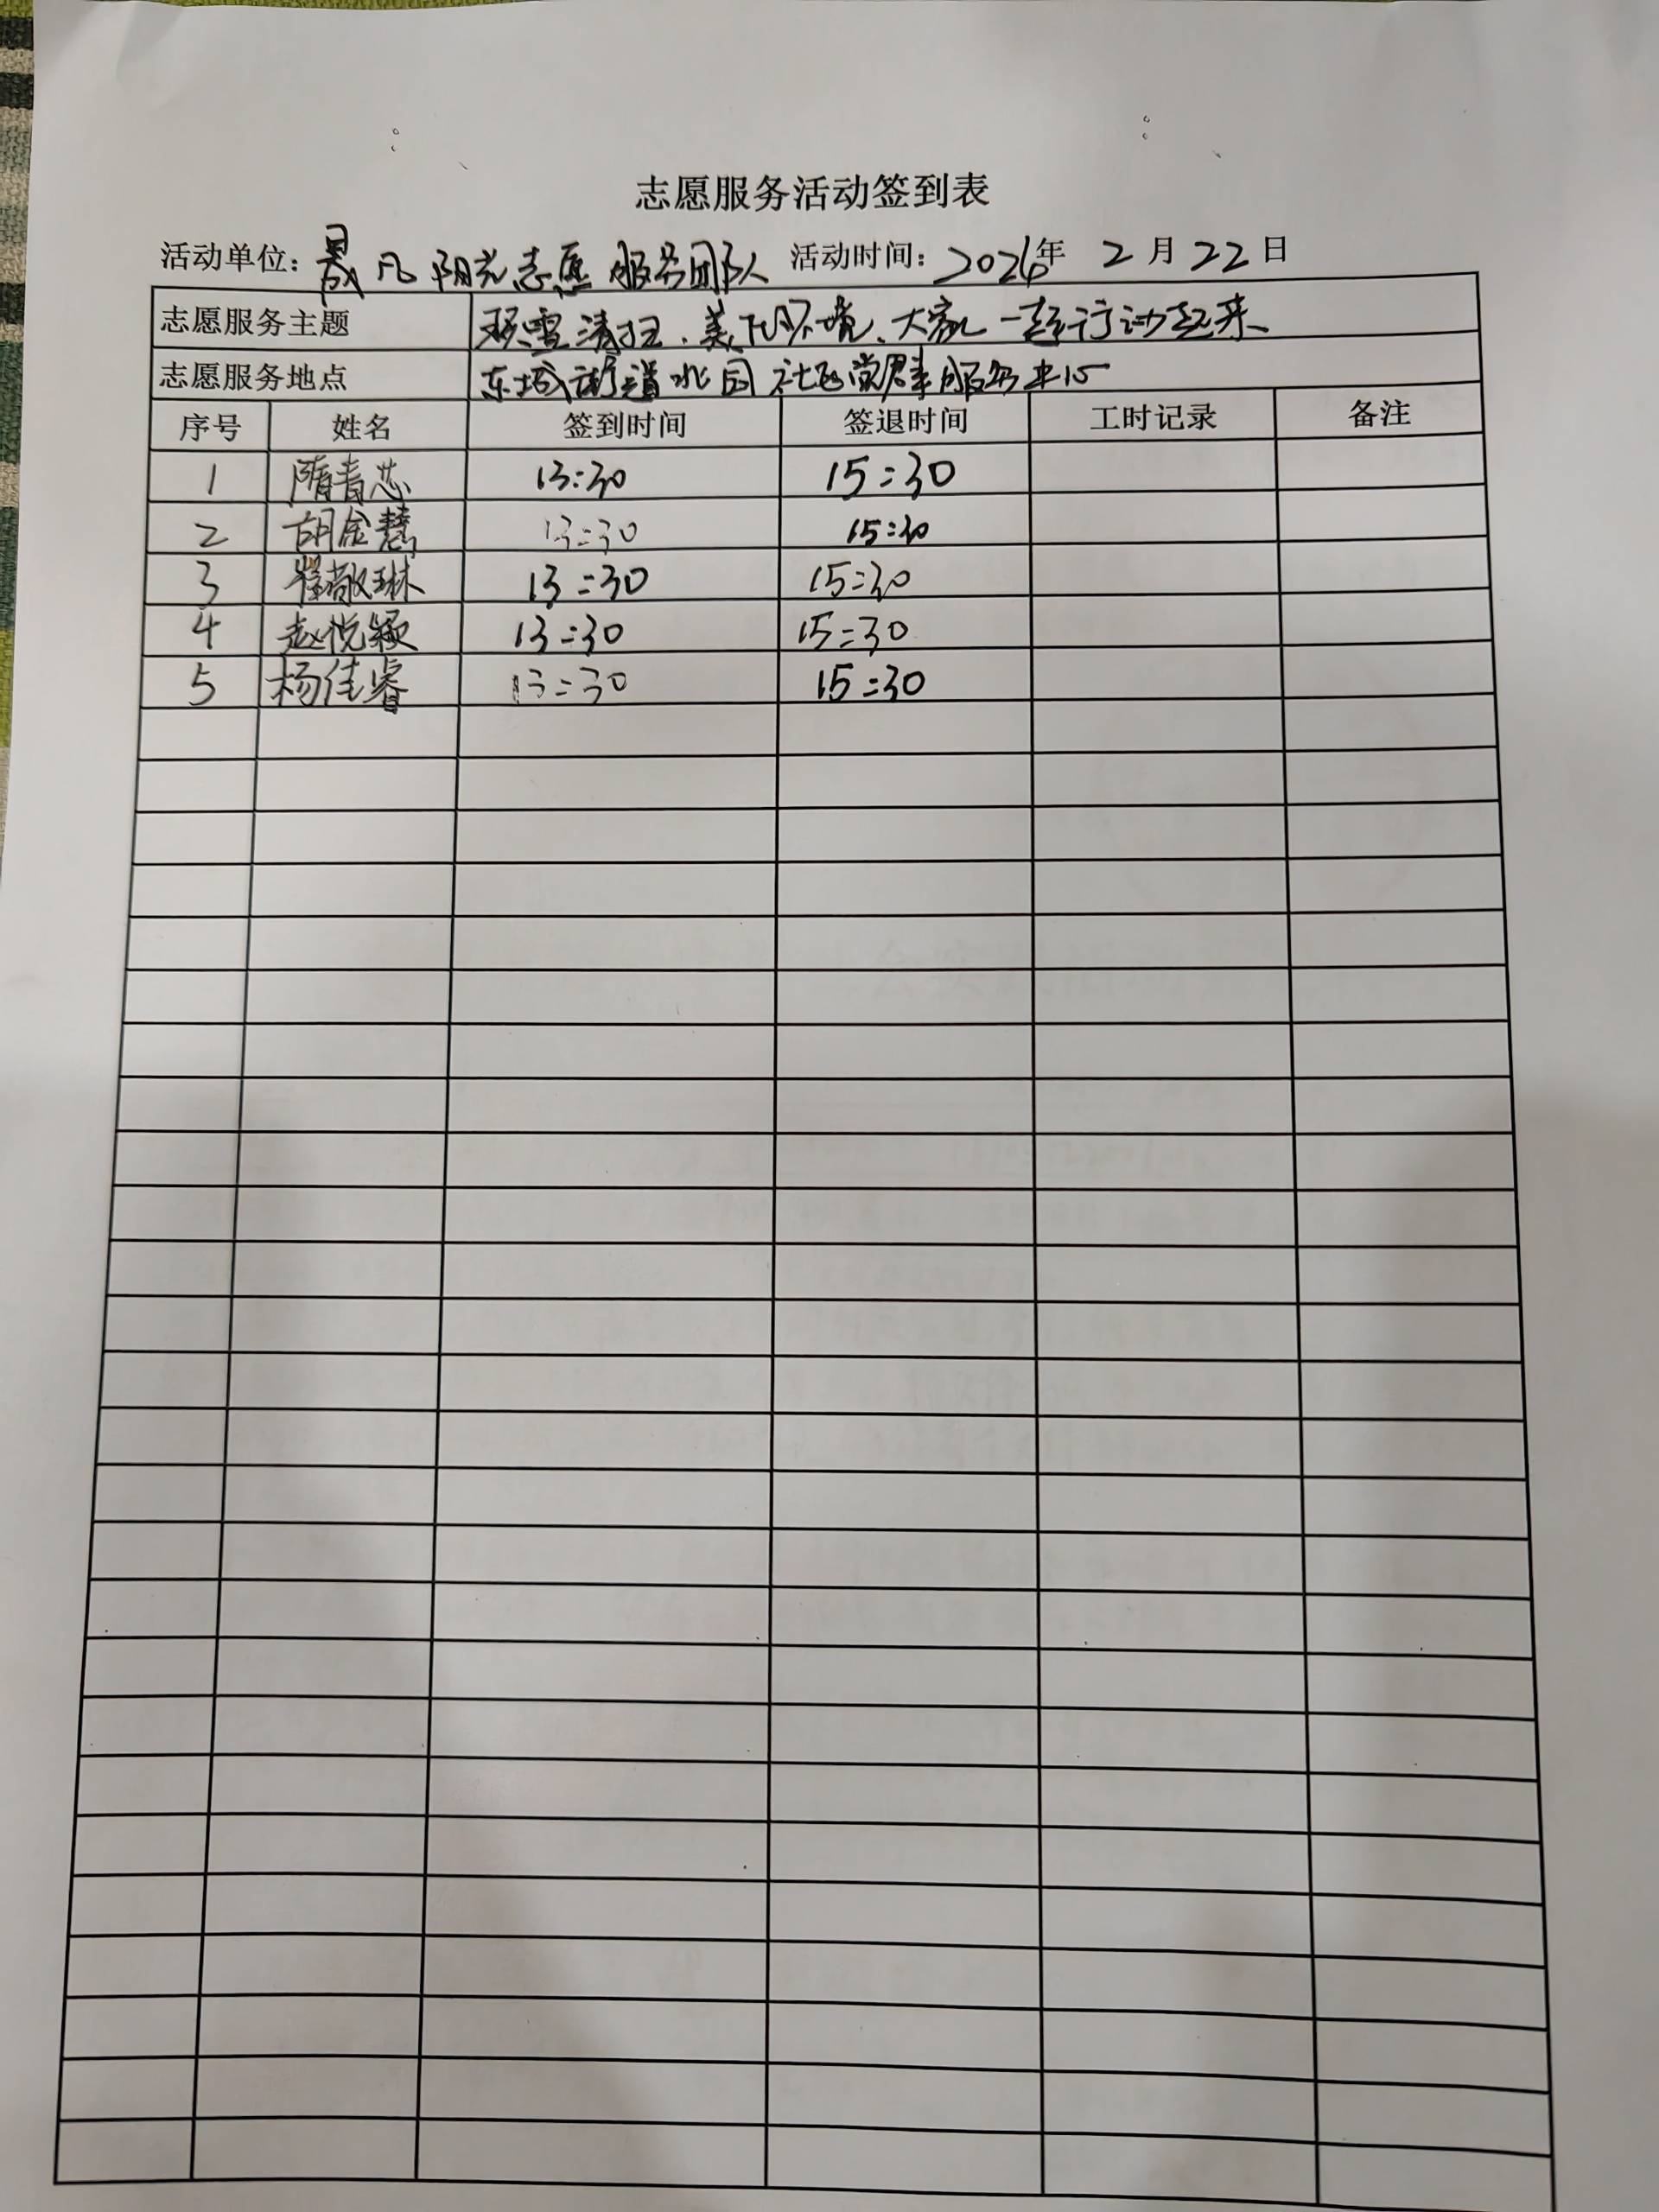 志愿服务活动签到表
活动单位：晟凡阳光志愿服务团队 活动时间：2026年 2月22日
志愿服务主题 积雪清扫、美化环境、大家一起行动起来
志愿服务地点 东城街道北园社区党群服务中心
序号 姓名 签到时间 签退时间 工时记录 备注
1 隋青芯 13:30 15:30
2 胡金慧 13:30 15:30
3 崔敬琳 13:30 15:30
4 赵悦颖 13:30 15:30
5 杨佳睿 13:30 15:30